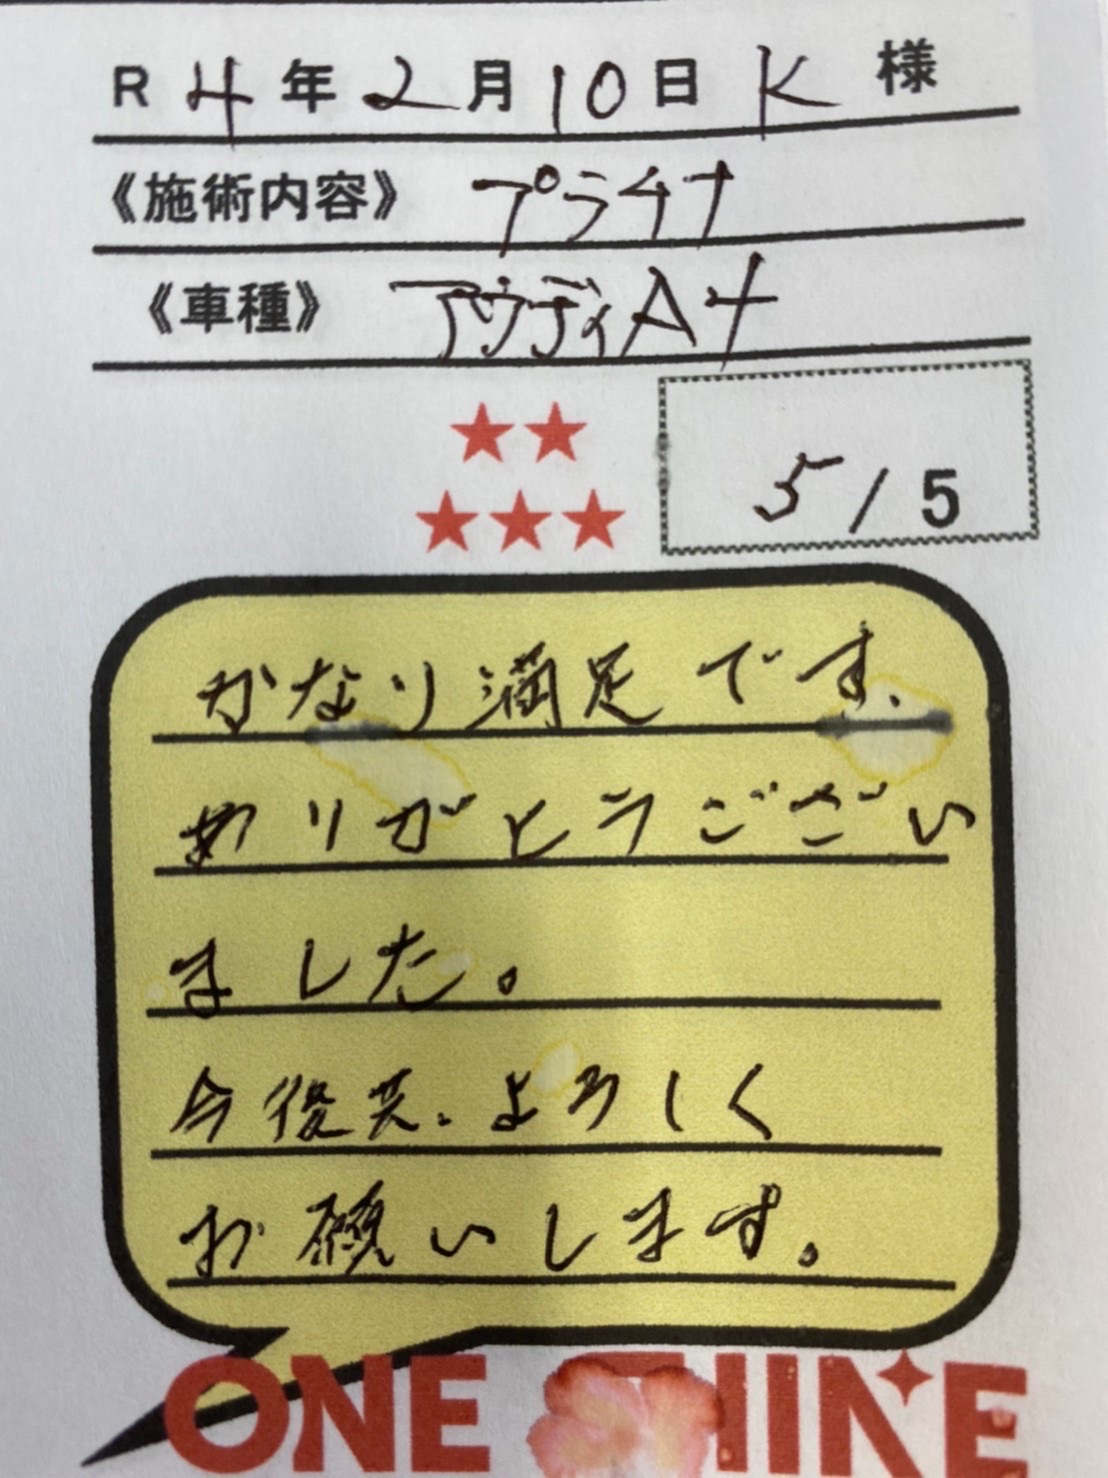 R 4年 2月 10日 K 様
《施術内容》 プラチナ
《車種》 アウディA4
5/5
かなり満足です。
ありがとうござい
ました。
今後共、よろしく
お願いします。
ONE SHINE